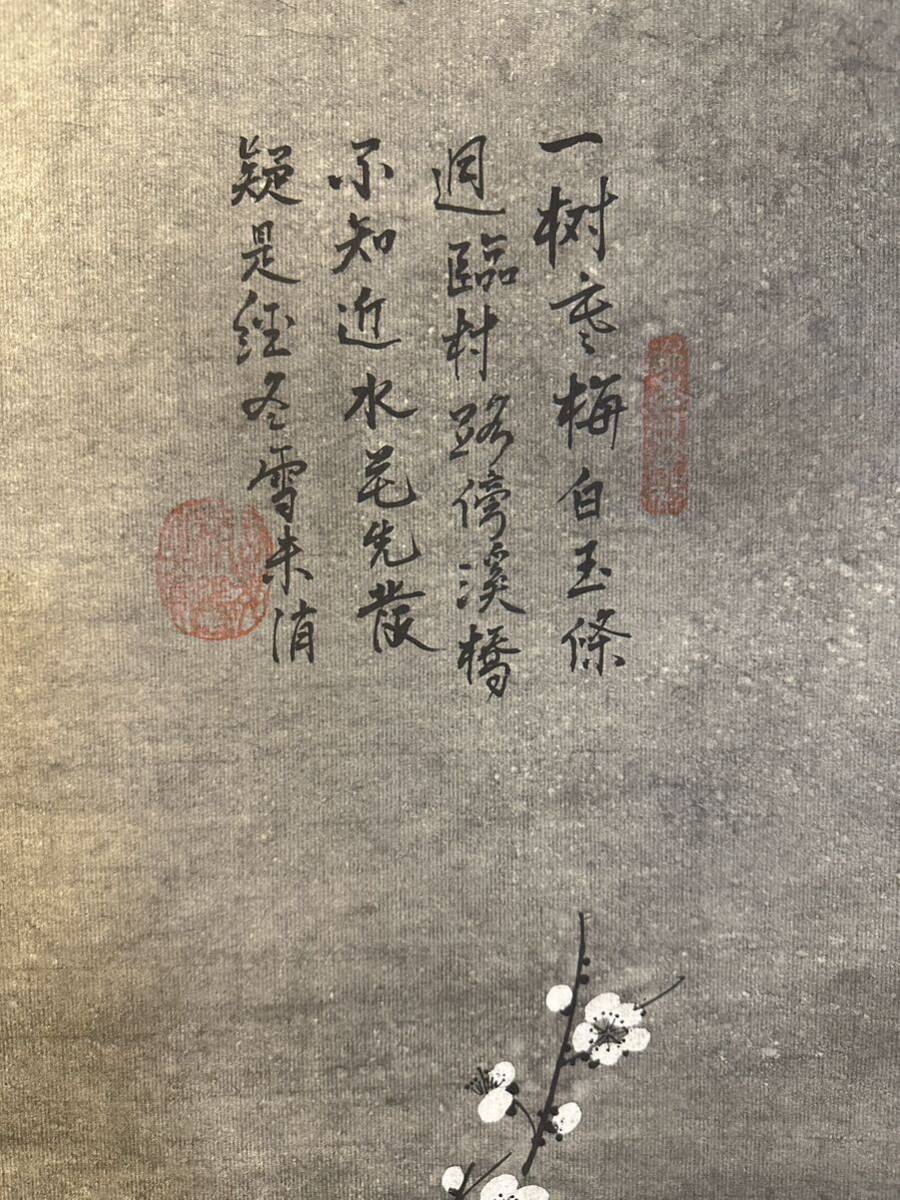 一树寒梅白玉條
迥臨村路傍溪橋
不知近水花先發
疑是經冬雪未消